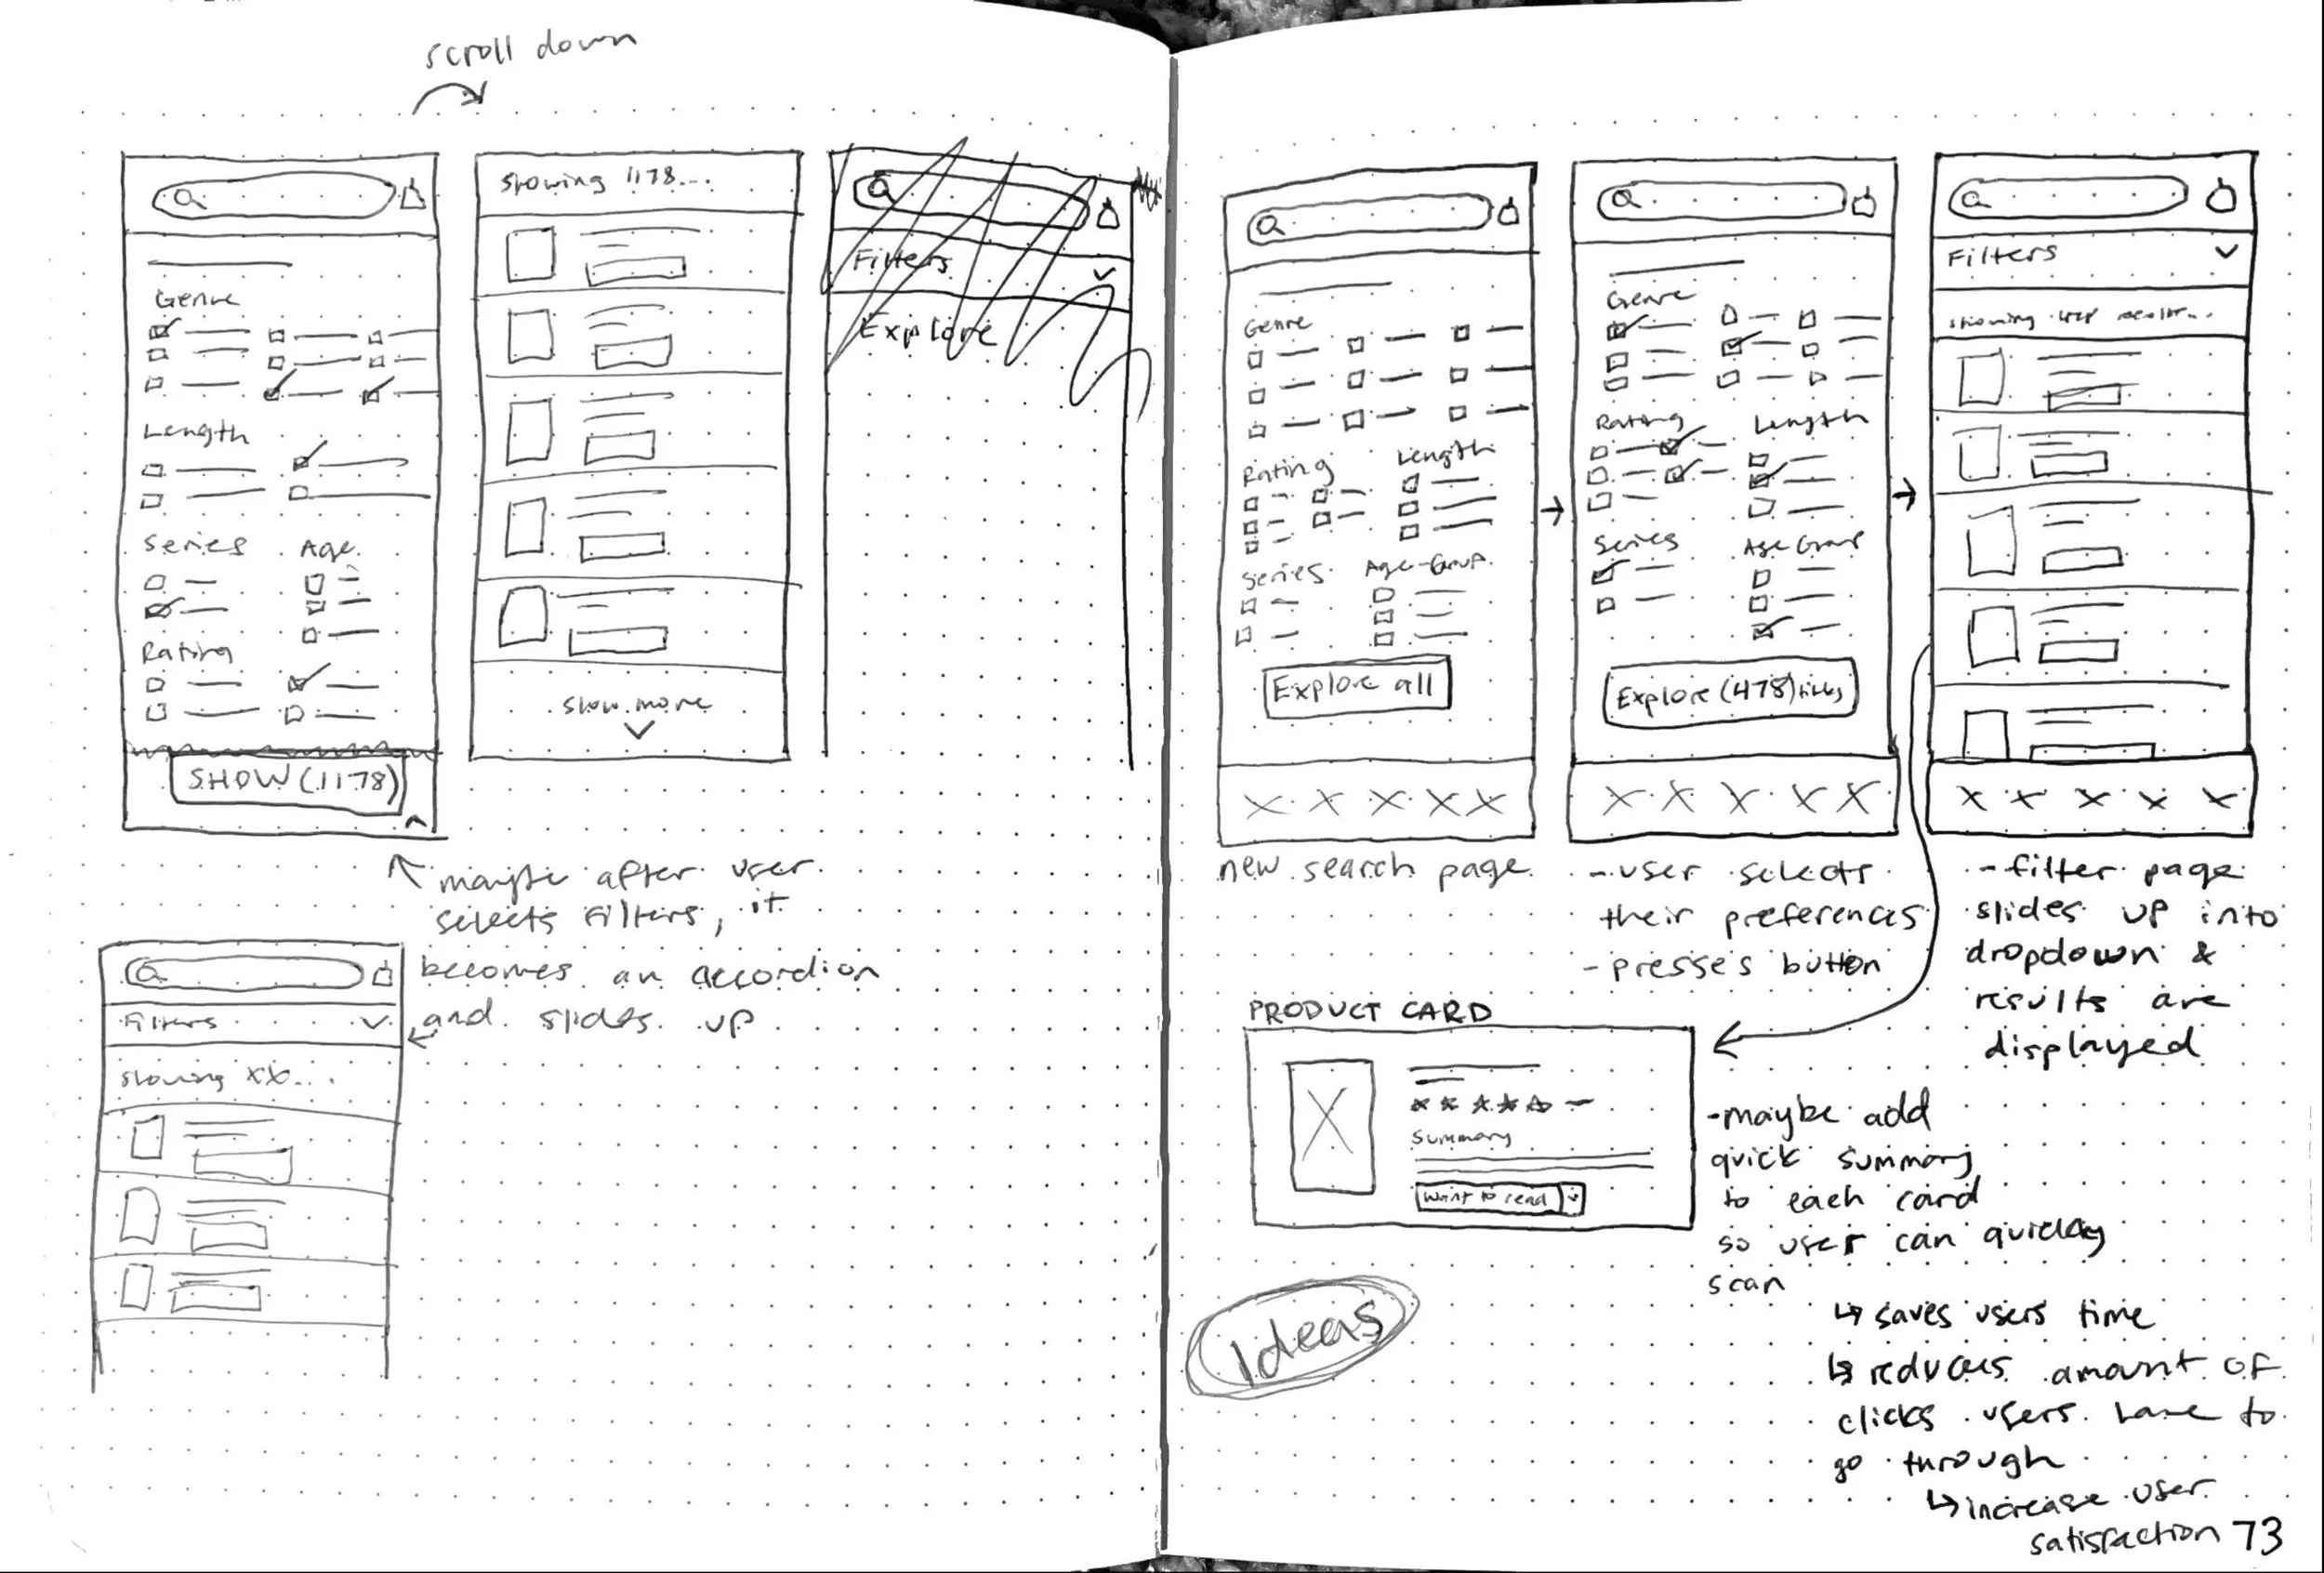 scroll down
Genre
Length
Series Age
Rating
SHOW (1178)
showing 1178...
show more
Filters
Explore
maybe after user
selects filters, it
becomes an accordion
and slides up
Filters
showing xx...
Genre
Rating Length
Series Age-Group
Explore all
new search page
Genre
Rating Length
Series Age Group
Explore (478) titles
- user selects
their preferences
- presses button
Filters
showing 478 results...
- filter page
slides up into
dropdown &
results are
displayed
PRODUCT CARD
Summary
want to read
- maybe add
quick summary
to each card
so user can quickly
scan
↳ saves users time
↳ reduces amount of
clicks users have to
go through
↳ increase user
satisfaction
Ideas
73